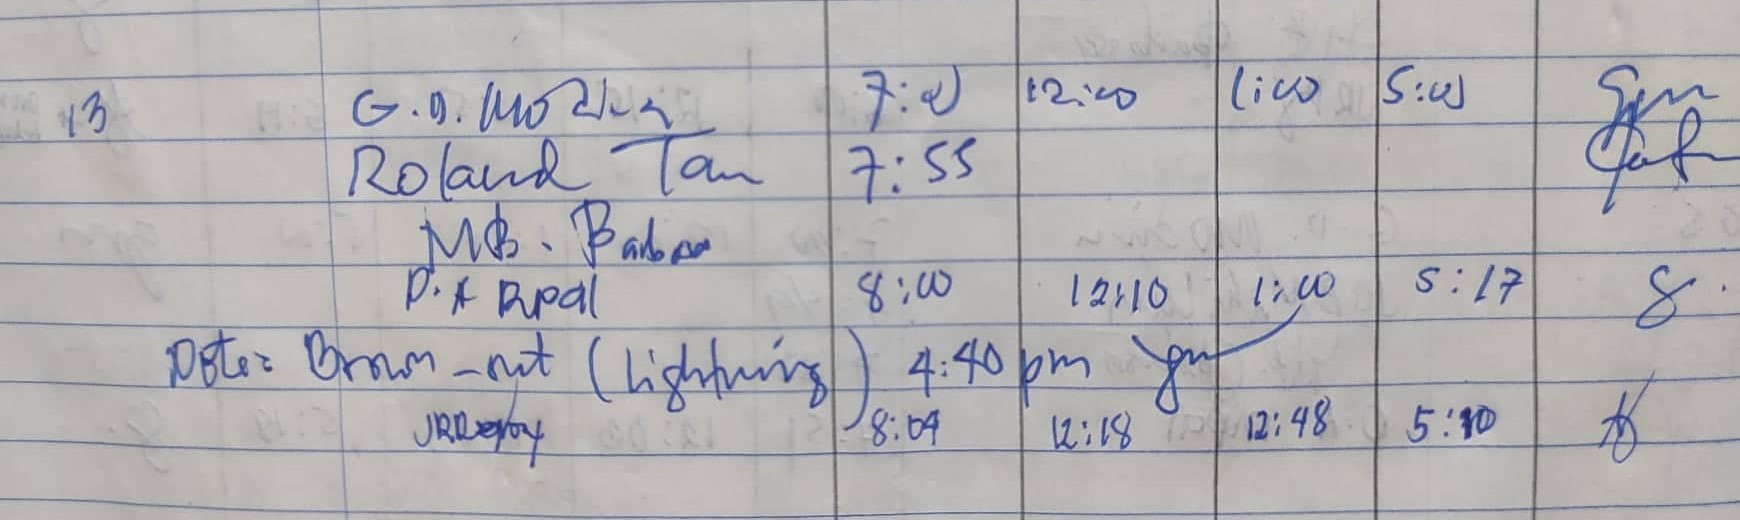 13 G.D. 7:00 12:00 1:00 5:00
Roland Tan 7:55
MB. 
D.A Rpal 8:00 12:10 1:00 5:17
Note: Brown-out (lightning) 4:40 pm
8:09 12:18 12:48 5:10